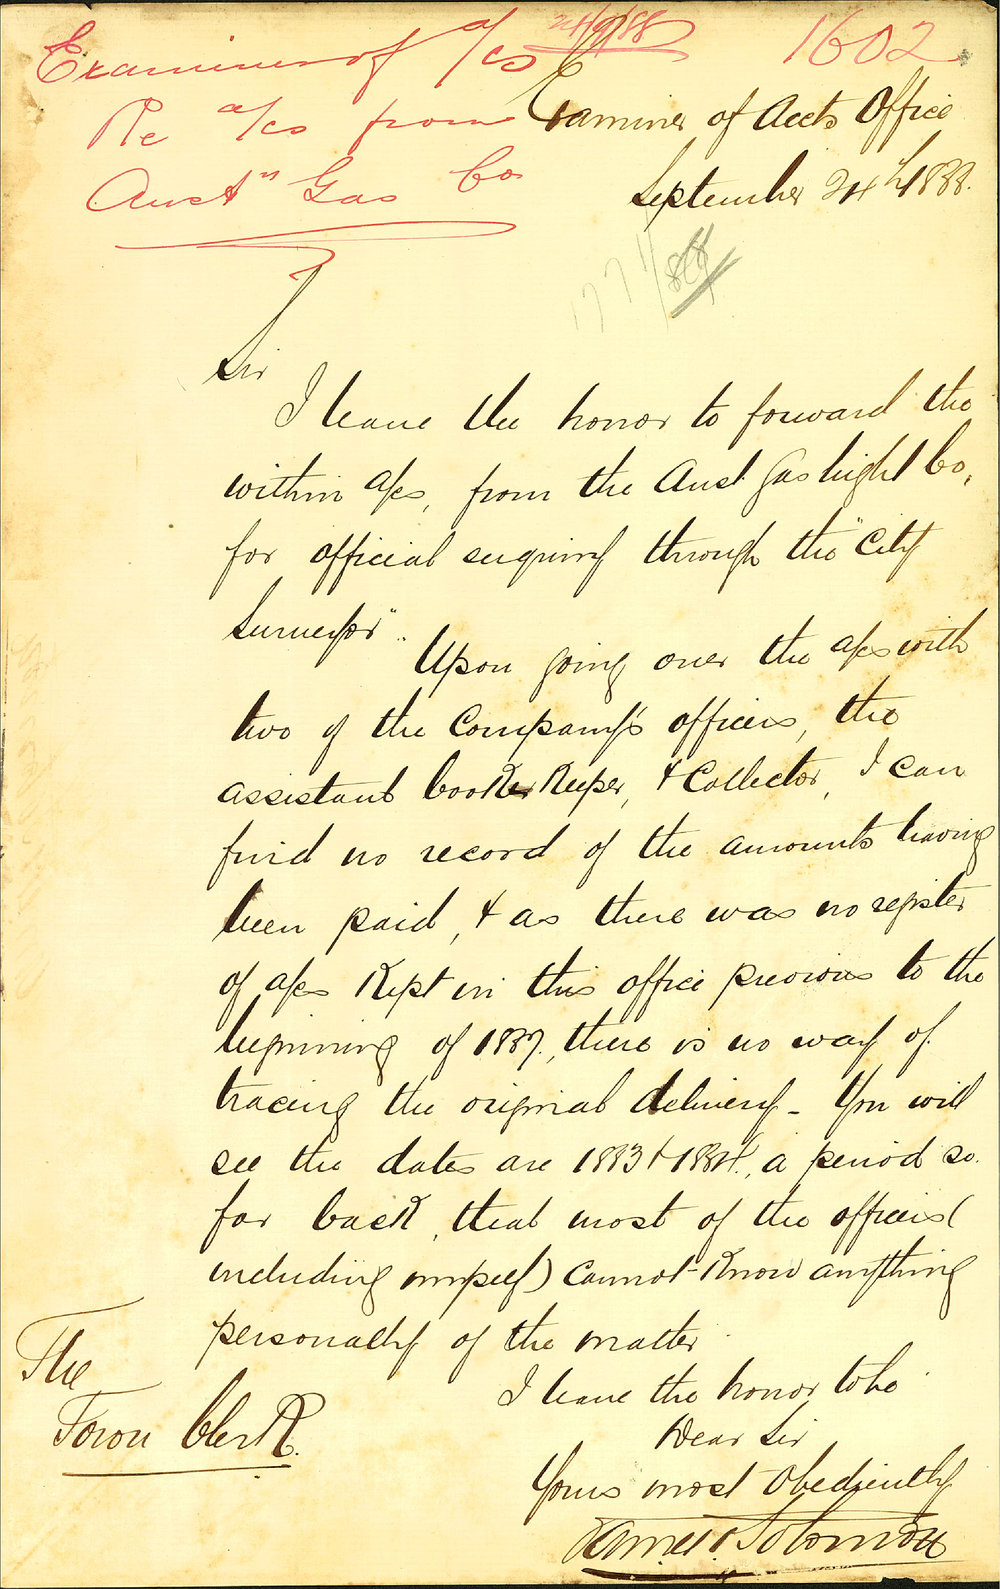 Examiner of a/cs 24/9/88 1602
Re a/cs from
Aust'n Gas Co
Examiner of Accts Office
September 24th 1888.
Sir
I have the honor to forward the
within a/cs, from the Aust. Gas Light Co,
for official enquiry through the "City
Surveyor".
Upon going over the a/cs with
two of the Company's officers, the
assistant bookkeeper, & Collector, I can
find no record of the amounts having
been paid, & as there was no register
of a/cs kept in this office previous to the
beginning of 1887, there is no way of
tracing the original delivery - You will
see the dates are 1883 & 1884, a period so
far back, that most of the officers (
including myself) cannot know anything
personally of the matter.
I have the honor to be
Dear Sir
Yours most obediently
James Solomon
The
Town Clerk.